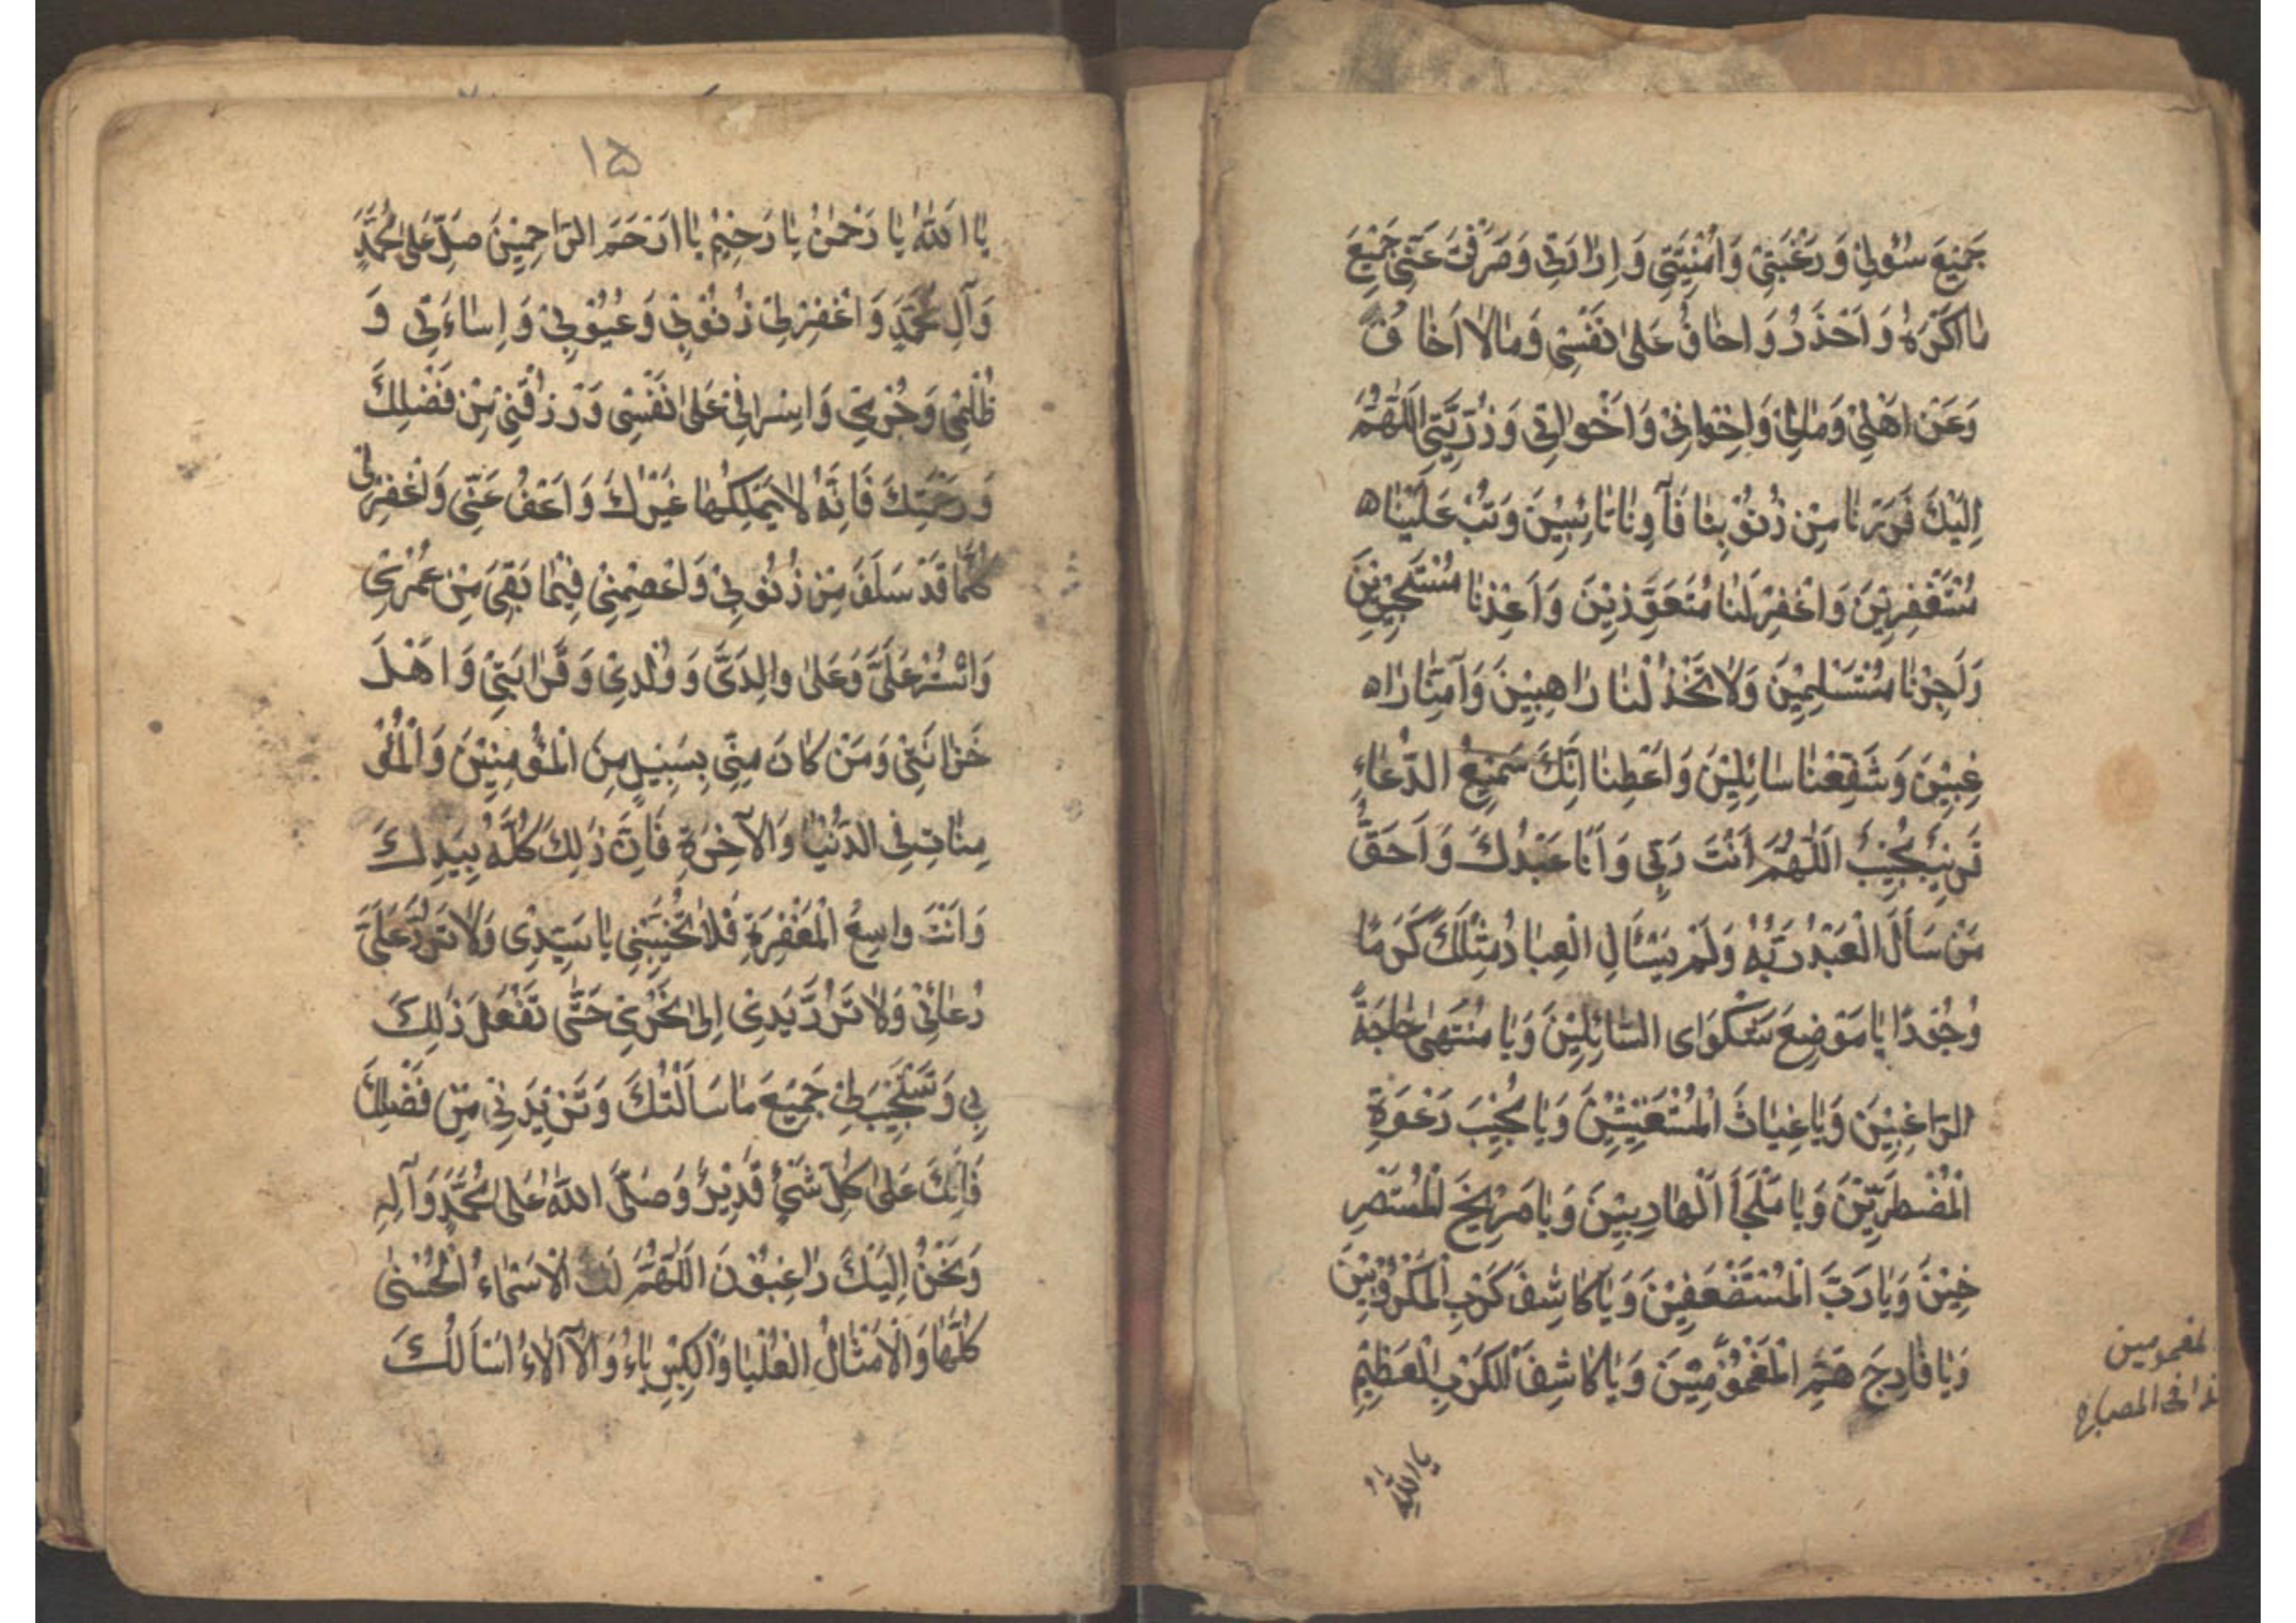 جَمِيْعَ سُؤْلِيْ وَرَغْبَتِيْ وَاُمْنِيَّتِيْ وَاِرَادَتِيْ وَصَرَفْتَ عَنِّيْ جَمِيْعَ
مَا اَكْرَهُ وَاَحْذَرُ وَاخَافُ عَلَى نَفْسِيْ وَمَالَا اَخَافُ
وَعَنْ اَهْلِيْ وَمَالِيْ وَاِخْوَانِيْ وَاَخَوَاتِيْ وَذُرِّيَّتِيْ اَللّٰهُمَّ
اِلَيْكَ فَرَرْنَا مِنْ ذُنُوْبِنَا فَآوِنَا تَائِبِيْنَ وَتُبْ عَلَيْنَا ه
مُسْتَغْفِرِيْنَ وَاغْفِرْ لَنَا مُتَعَوِّذِيْنَ وَاَعِذْنَا مُسْتَجِيْرِيْنَ
وَاَجِرْنَا مُسْتَسْلِمِيْنَ وَلَا تَخْذُلْنَا رَاهِبِيْنَ وَآمِنَّا رَا ه
غِبِيْنَ وَشَفِّعْنَا سَائِلِيْنَ وَاَعْطِنَا اِنَّكَ سَمِيْعُ الدُّعَاءِ
قَرِيْبٌ مُجِيْبٌ اَللّٰهُمَّ اَنْتَ رَبِّيْ وَاَنَا عَبْدُكَ وَاَحَقُّ
مَنْ سَاَلَ الْعَبْدُ رَبُّهُ وَلَمْ يَسْأَلِ الْعِبَادُ مِثْلَكَ كَرَمًا
وَجُوْدًا يَا مَوْضِعَ شَكْوَاى السَّائِلِيْنَ وَيَا مُنْتَهَى حَاجَةَ
الرَّاغِبِيْنَ وَيَا غِيَاثَ الْمُسْتَغِيْثِيْنَ وَيَا مُجِيْبَ دَعْوَةِ
الْمُضْطَرِّيْنَ وَيَا مَلْجَأَ الْهَارِبِيْنَ وَيَا صَرِيْخَ الْمُسْتَصْرِ
خِيْنَ وَيَا رَبَّ الْمُسْتَضْعَفِيْنَ وَيَا كَاشِفَ كَرْبِ الْمَكْرُوْبِيْنَ
وَيَا فَارِجَ هَمِّ الْمَغْمُوْمِيْنَ وَيَا كَاشِفَ الْكَرْبِ الْعَظِيْمِ
يَا اَللّٰهُ
١٥
يَا اَللّٰهُ يَا رَحْمٰنُ يَا رَحِيْمُ يَا اَرْحَمَ الرَّاحِمِيْنَ صَلِّ عَلَى مُحَمَّدٍ
وَآلِ مُحَمَّدٍ وَاغْفِرْ لِيْ ذُنُوْبِيْ وَعُيُوْبِيْ وَاِسَاءَتِيْ وَ
ظُلْمِيْ وَجُرْمِيْ وَاِسْرَافِيْ عَلَى نَفْسِيْ وَرْزُقْنِيْ مِنْ فَضْلِكَ
وَرَحْمَتِكَ فَاِنَّهُ لَا يَمْلِكُهَا غَيْرُكَ وَاعْفُ عَنِّيْ وَاغْفِرْ لِيْ
كُلَّمَا قَدْ سَلَفَ مِنْ ذُنُوْبِيْ وَاعْصِمْنِيْ فِيْمَا بَقِيَ مِنْ عُمْرِيْ
وَاسْتُرْ عَلَيَّ وَعَلَى وَالِدَيَّ وَوُلْدِيْ وَقَرَابَتِيْ وَاَهْلَ
حُزَانَتِيْ وَمَنْ كَانَ مِنِّيْ بِسَبِيْلٍ مِنَ الْمُؤْمِنِيْنَ وَالْمُؤْ
مِنَاتِ فِي الدُّنْيَا وَالْآخِرَةِ فَاِنَّ ذٰلِكَ كُلَّهُ بِيَدِكَ
وَاَنْتَ وَاسِعُ الْمَغْفِرَةِ فَلَا تُخَيِّبْنِيْ يَا سَيِّدِيْ وَلَا تَرُدَّ عَلَيَّ
دُعَائِيْ وَلَا تَرُدَّ يَدِيْ اِلَى نَحْرِيْ حَتّٰى تَفْعَلَ ذٰلِكَ
بِيْ وَتَسْتَجِيْبَ لِيْ جَمِيْعَ مَا سَاَلْتُكَ وَتَزِيْدَنِيْ مِنْ فَضْلِكَ
فَاِنَّكَ عَلَى كُلِّ شَيْءٍ قَدِيْرٌ وَصَلَّى اللّٰهُ عَلَى مُحَمَّدٍ وَآلِهِ
وَنَحْنُ اِلَيْكَ رَاغِبُوْنَ اَللّٰهُمَّ لَكَ الْاَسْمَاءُ الْحُسْنَى
كُلُّهَا وَالْاَمْثَالُ الْعُلْيَا وَالْكِبْرِيَاءُ وَالْآلَاءُ اَسْاَلُكَ